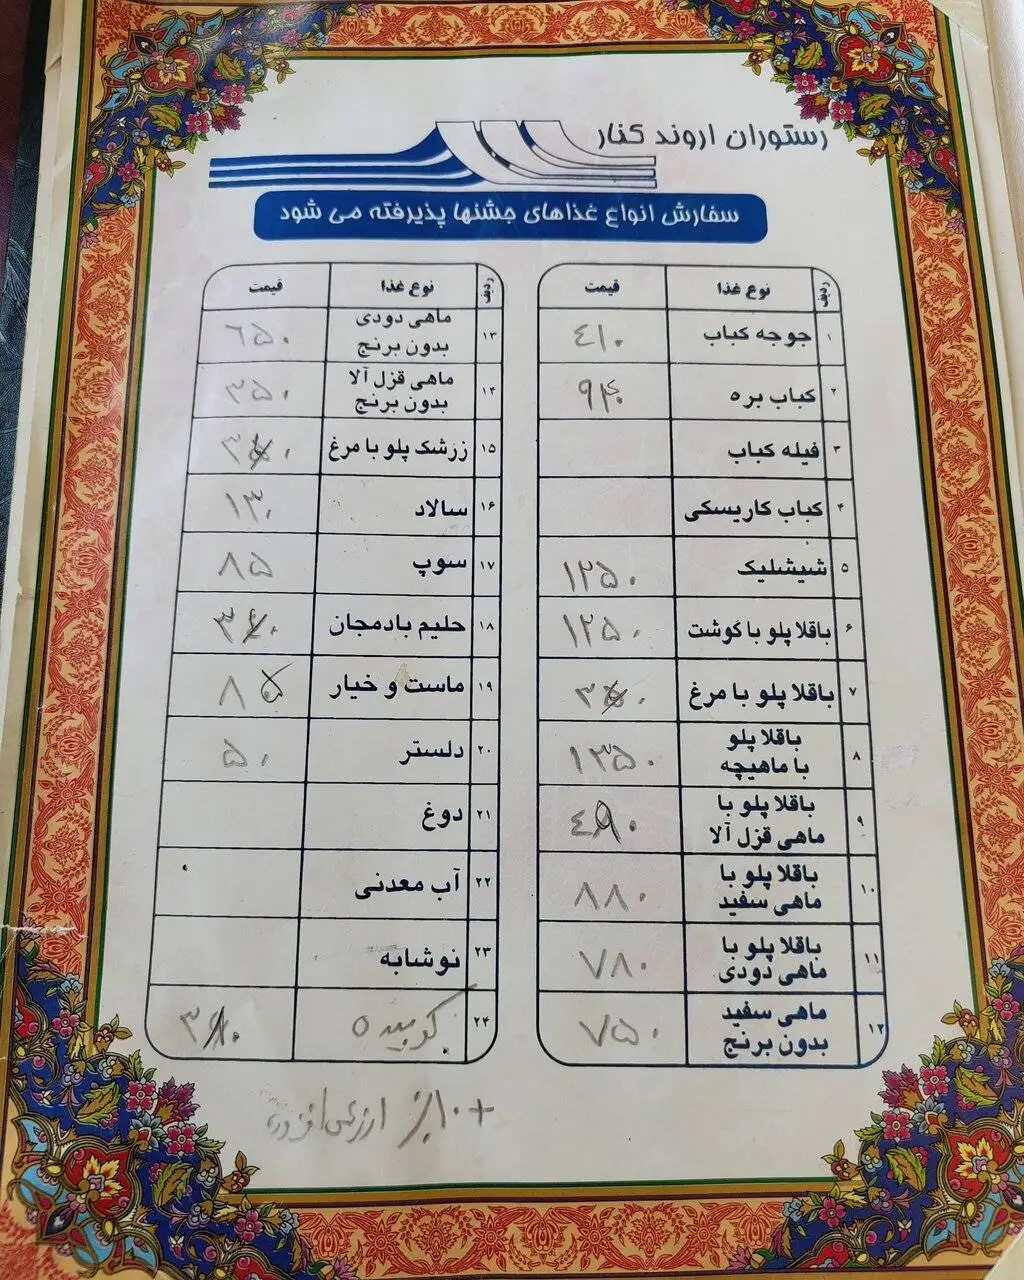 رستوران اروند کنار
سفارش انواع غذاهای جشنها پذیرفته می شود
ردیف نوع غذا قیمت
۱ جوجه کباب ۴۱۰
۲ کباب بره
۳ فیله کباب
۴ کباب کاریسکی
۵ شیشلیک ۱۲۵۰
۶ باقلا پلو با گوشت ۱۲۵۰
۷ باقلا پلو با مرغ
۸ باقلا پلو
با ماهیچه ۱۳۵۰
۹ باقلا پلو با
ماهی قزل آلا
۱۰ باقلا پلو با
ماهی سفید ۸۸۰
۱۱ باقلا پلو با
ماهی دودی ۷۸۰
۱۲ ماهی سفید
بدون برنج ۷۵۰
ردیف نوع غذا قیمت
۱۳ ماهی دودی
بدون برنج ۶۵۰
۱۴ ماهی قزل آلا
بدون برنج ۳۵۰
۱۵ زرشک پلو با مرغ
۱۶ سالاد ۱۳۰
۱۷ سوپ ۸۵
۱۸ حلیم بادمجان
۱۹ ماست و خیار
۲۰ دلستر ۵۰
۲۱ دوغ
۲۲ آب معدنی
۲۳ نوشابه
۲۴ کوبیده
+ ۱۰٪ ارزش افزوده